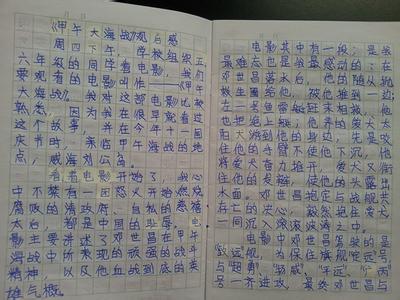 《甲午大海战》观后感
周四下午，学校组织五
六年级的同学看电影，我们
要观看的电影叫作——《甲午
大海战》。我对这部电影比较
熟悉，因为我在很早就看过
这个故事，并在今年十一国
庆节时，亲临甲午海战的地
点，威海刘公岛。
看着电影开始了，我心
中不禁有一团怒火开始燃烧
腐败的清政府、自私的慈禧
太后，都是中国的耻辱。电
影主要讲述了邓世昌在甲午
海战中所表现的英勇战斗的
精神，以及他血战到底的英
雄气概。
电影其中有一段；是我
最难忘也是我最感动的：在
邓世昌落水后，他的随从抛
救生圈给他，被他推到一边；
在一条鱼雷艇驶来相救，他
也把艇上拒，他养的爱犬太
阳犬游到他的身边，先是咬
住他的手臂不使他下沉，他
将爱犬奋力推开，爱犬又衔
住他的发辫，使他的头露出
水面。邓世昌抱定与战舰共
存亡的决心，毅然抱住爱犬，
一同沉入滚滚波涛之中。
电影中邓世昌驾驶的是
"致远舰"，为保护旗舰"定远"
与"超勇"、"扬威"、"平远"、"广丙"
号一齐进攻，最